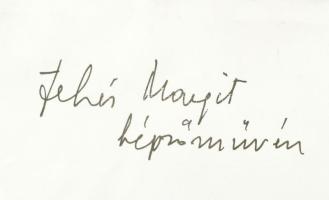 Fehér Margit
képzőművén